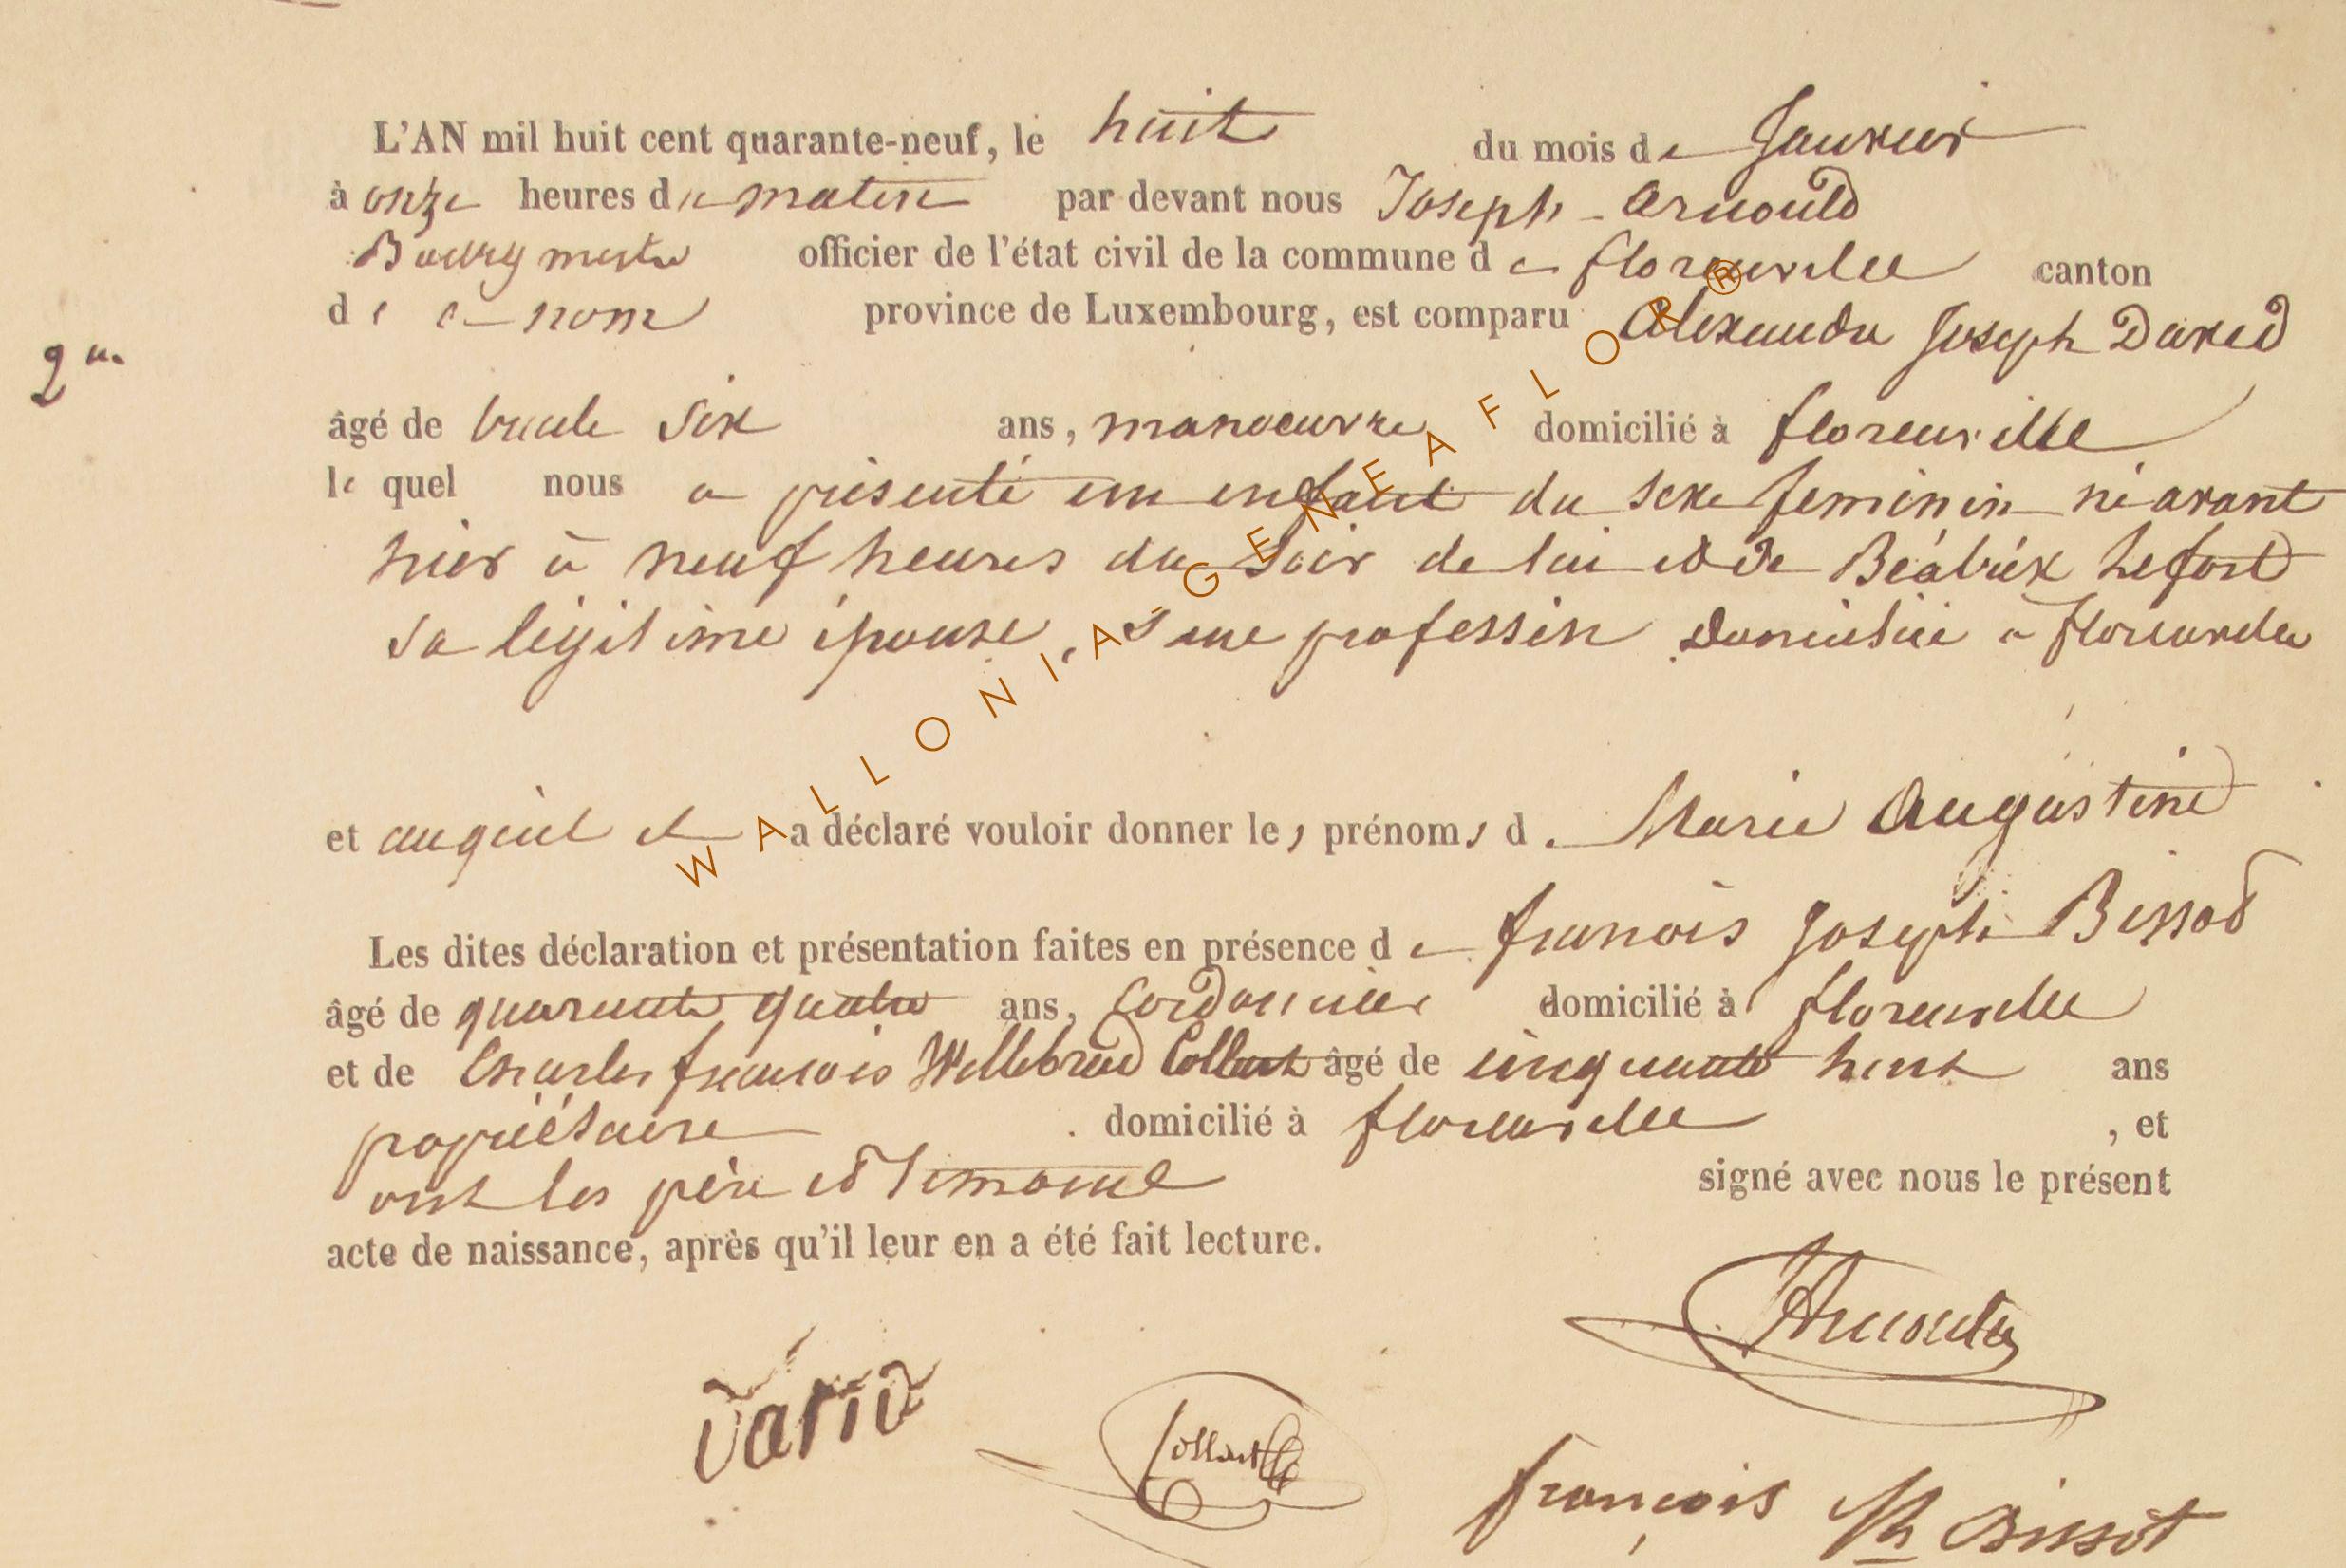 L'AN mil huit cent quarante-neuf, le huit du mois de Janvier
à onze heures du matin par devant nous Joseph Arnould
Bourgmestre officier de l'état civil de la commune de florenville canton
de ce nom province de Luxembourg, est comparu Alexandre Joseph David
2me
âgé de trente six ans, manoeuvre domicilié à florenville
le quel nous a présenté un enfant du sexe feminin né avant
hier à neuf heures du soir de lui et de Béatrix Lefort
sa légitime épouse, sans profession domiciliée à florenville
et auquel il a déclaré vouloir donner les prénoms de Marie Augustine
Les dites déclaration et présentation faites en présence de françois Joseph Bissot
âgé de quarante quatre ans, Cordonnier domicilié à florenville
et de Charles françois Willebrod Collart âgé de cinquante huit ans
propriétaire domicilié à florenville, et
ont les père et témoins signé avec nous le présent
acte de naissance, après qu'il leur en a été fait lecture.
JArnould
David
Collart
françois Jh Bissot
WALLONIA-GENEAFLOR®